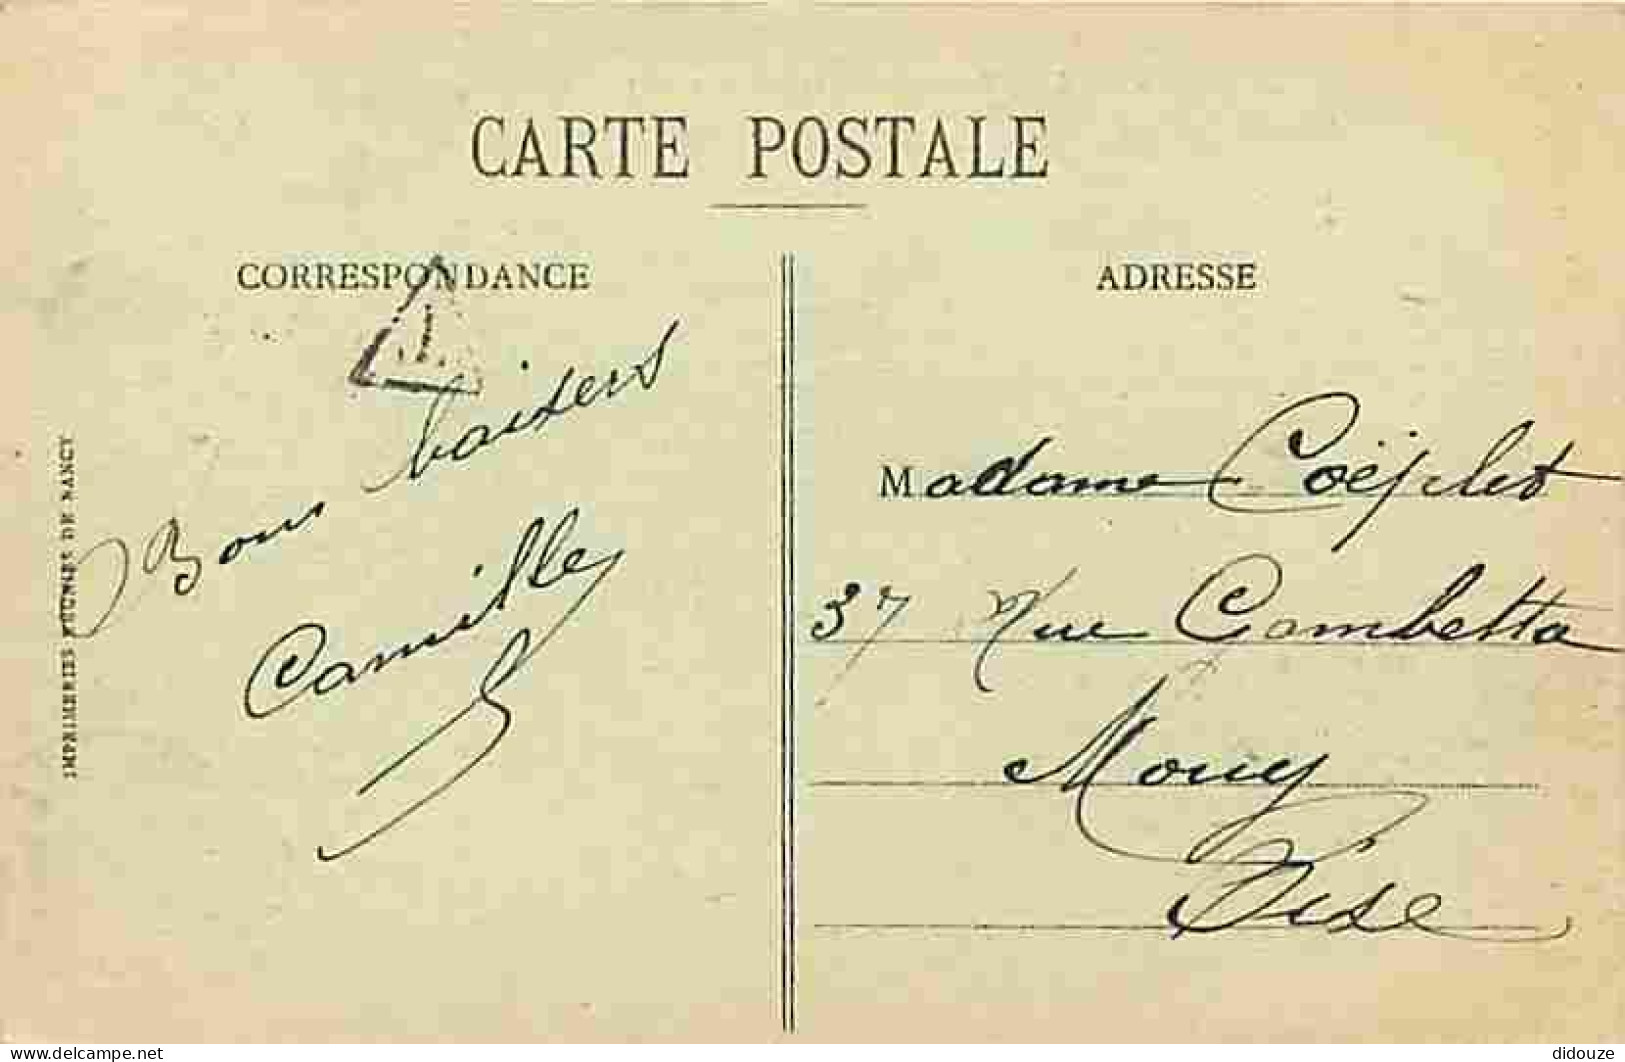 CARTE POSTALE
CORRESPONDANCE
ADRESSE
Bons baisers
Camille
Madame
37 Rue Gambetta
Mouy
Oise
IMPRIMERIES RÉUNIES DE NANCY
delcampe.net
didouze